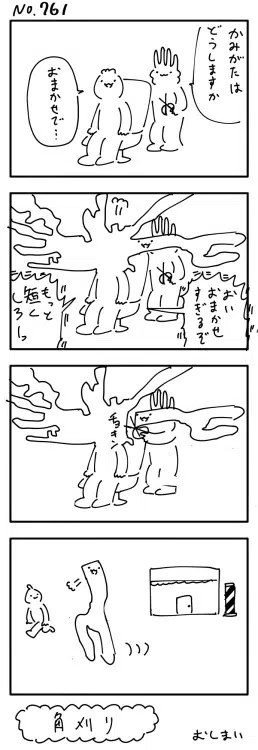 No.761
かみがたは
どうしますか
おまかせで…
おい
おまかせ
すぎるぞ
もっと
短く
しろーっ
チョキン
角刈り
おしまい